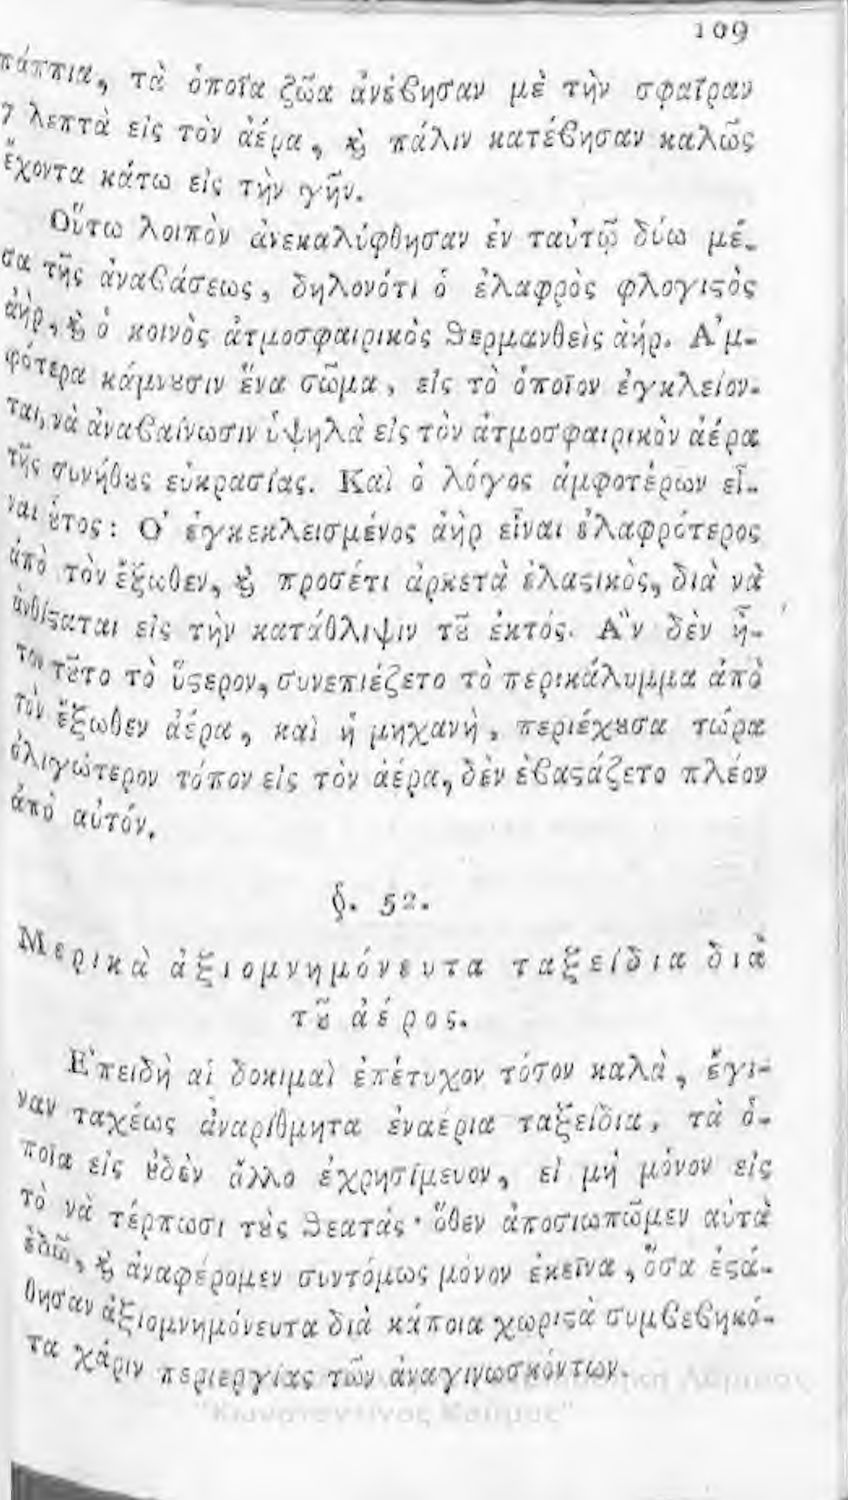 109
πάππια, τὰ ὁποῖα ζῶα ἀνέβησαν μὲ τὴν σφαῖραν
7 λεπτὰ εἰς τὸν ἀέρα, ϗ̀ πάλιν κατέβησαν καλῶς
ἔχοντα κάτω εἰς τὴν γῆν.
Οὕτω λοιπὸν ἀνεκαλύφθησαν ἐν ταὐτῷ δύω μέ-
σα τῆς ἀναβάσεως, δηλονότι ὁ ἐλαφρὸς φλογιϛὸς
ἀὴρ, ϗ̀ ὁ κοινὸς ἀτμοσφαιρικὸς θερμανθεὶς ἀήρ. Ἀμ-
φότερα κάμνȣσιν ἕνα σῶμα, εἰς τὸ ὁποῖον ἐγκλείον-
ται, νὰ ἀναβαίνωσιν ὑψηλὰ εἰς τὸν ἀτμοσφαιρικὸν ἀέρα
τῆς συνήθȣς εὐκρασίας. Καὶ ὁ λόγος ἀμφοτέρων εἶ-
ναι ȣ̔́τος: Ὁ ἐγκεκλεισμένος ἀὴρ εἶναι ἐλαφρότερος
ἀπὸ τὸν ἔξωθεν, ϗ̀ προσέτι ἀρκετὰ ἐλαϛικὸς, διὰ νὰ
ἀνθίϛαται εἰς τὴν κατάθλιψιν τȣ͂ ἐκτός. Ἂν δὲν ἦ-
τον τȣ͂το τὸ ὕϛερον, συνεπιέζετο τὸ περικάλυμμα ἀπὸ
τὸν ἔξωθεν ἀέρα, καὶ ἡ μηχανὴ, περιέχȣσα τώρα
ὀλιγώτερον τόπον εἰς τὸν ἀέρα, δὲν ἐβαϛάζετο πλέον
ἀπὸ αὐτόν.
§. 52.
Μερικὰ ἀξιομνημόνευτα ταξείδια διὰ
τȣ͂ ἀέρος.
Ἐπειδὴ αἱ δοκιμαὶ ἐπέτυχον τόσον καλὰ, ἔγι-
ναν ταχέως ἀναρίθμητα ἐναέρια ταξείδια, τὰ ὁ-
ποῖα εἰς ȣ̓δὲν ἄλλο ἐχρησίμευον, εἰ μὴ μόνον εἰς
τὸ νὰ τέρπωσι τȣ̀ς θεατάς· ὅθεν ἀποσιωπῶμεν αὐτὰ
ἐδῶ, ϗ̀ ἀναφέρομεν συντόμως μόνον ἐκεῖνα, ὅσα ἐϛά-
θησαν ἀξιομνημόνευτα διὰ κάποια χωριϛὰ συμβεβηκό-
τα χάριν περιεργίας τῶν ἀναγινωσκόντων.